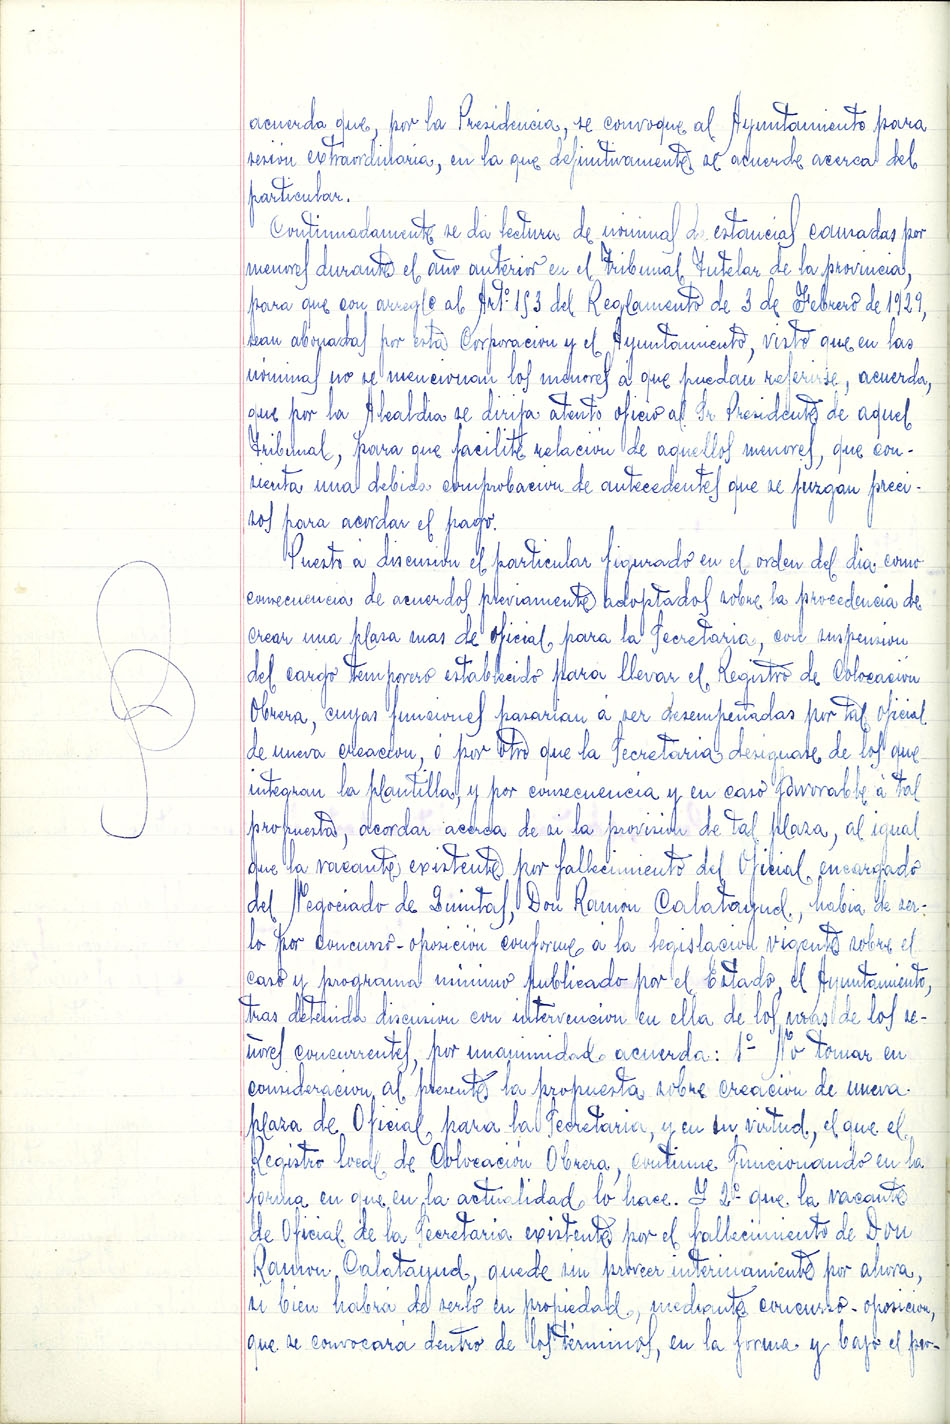 acuerda que, por la Presidencia, se convoque al Ayuntamiento para
sesión extraordinaria, en la que definitivamente se acuerde acerca del
particular.
Continuadamente se da lectura de nóminas de estancias causadas por
menores durante el año anterior en el Tribunal Tutelar de la provincia,
para que con arreglo al Artº 153 del Reglamento de 3 de Febrero de 1929,
sean abonadas por esta Corporacion y el Ayuntamiento, visto que en las
nóminas no se mencionan los menores a que puedan referirse, acuerda,
que por la Alcaldia se dirija atento oficio al Sr Presidente de aquel
Tribunal, para que facilite relación de aquellos menores, que con-
sienta una debida comprobacion de antecedentes que se juzgan preci-
sos para acordar el pago.
Puesto á discusion el particular figurado en el orden del dia como
consecuencia de acuerdos previamente adoptados sobre la procedencia de
crear una plaza mas de oficial para la Secretaria, con suspension
del cargo temporero establecido para llevar el Registro de Colocación
Obrera, cuyas funciones pasarian á ser desempeñadas por tal oficial
de nueva creacion, ó por otro que la Secretaria designase de los que
integran la plantilla, y por consecuencia y en caso favorable á tal
propuesta, acordar acerca de si la provision de tal plaza, al igual
que la vacante existente por fallecimiento del Oficial encargado
del Negociado de Quintas, Don Ramon Calatayud, habia de ser-
lo por concurso-oposición conforme á la legislacion vigente sobre el
caso y programa minimo publicado por el Estado, el Ayuntamiento,
tras detenida discusion con intervencion en ella de los mas de los se-
ñores concurrentes, por unanimidad acuerda: 1º No tomar en
consideracion al presente la propuesta sobre creación de nueva
plaza de Oficial para la Secretaria, y en su virtud, el que el
Registro local de Colocación Obrera, continue funcionando en la
forma en que en la actualidad lo hace. Y 2º que la vacante
de Oficial de la Secretaria existente por el fallecimiento de Don
Ramon Calatayud, quede sin proveer interinamente por ahora,
si bien habrá de serlo en propiedad, mediante concurso-oposicion,
que se convocará dentro de los términos, en la forma y bajo el pro-